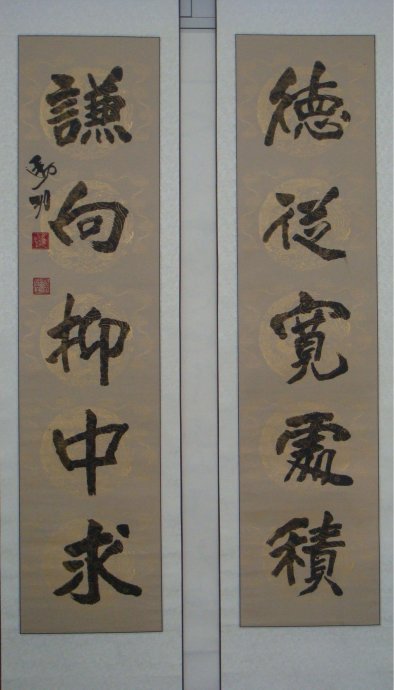 德從寬處積
謙向抑中求